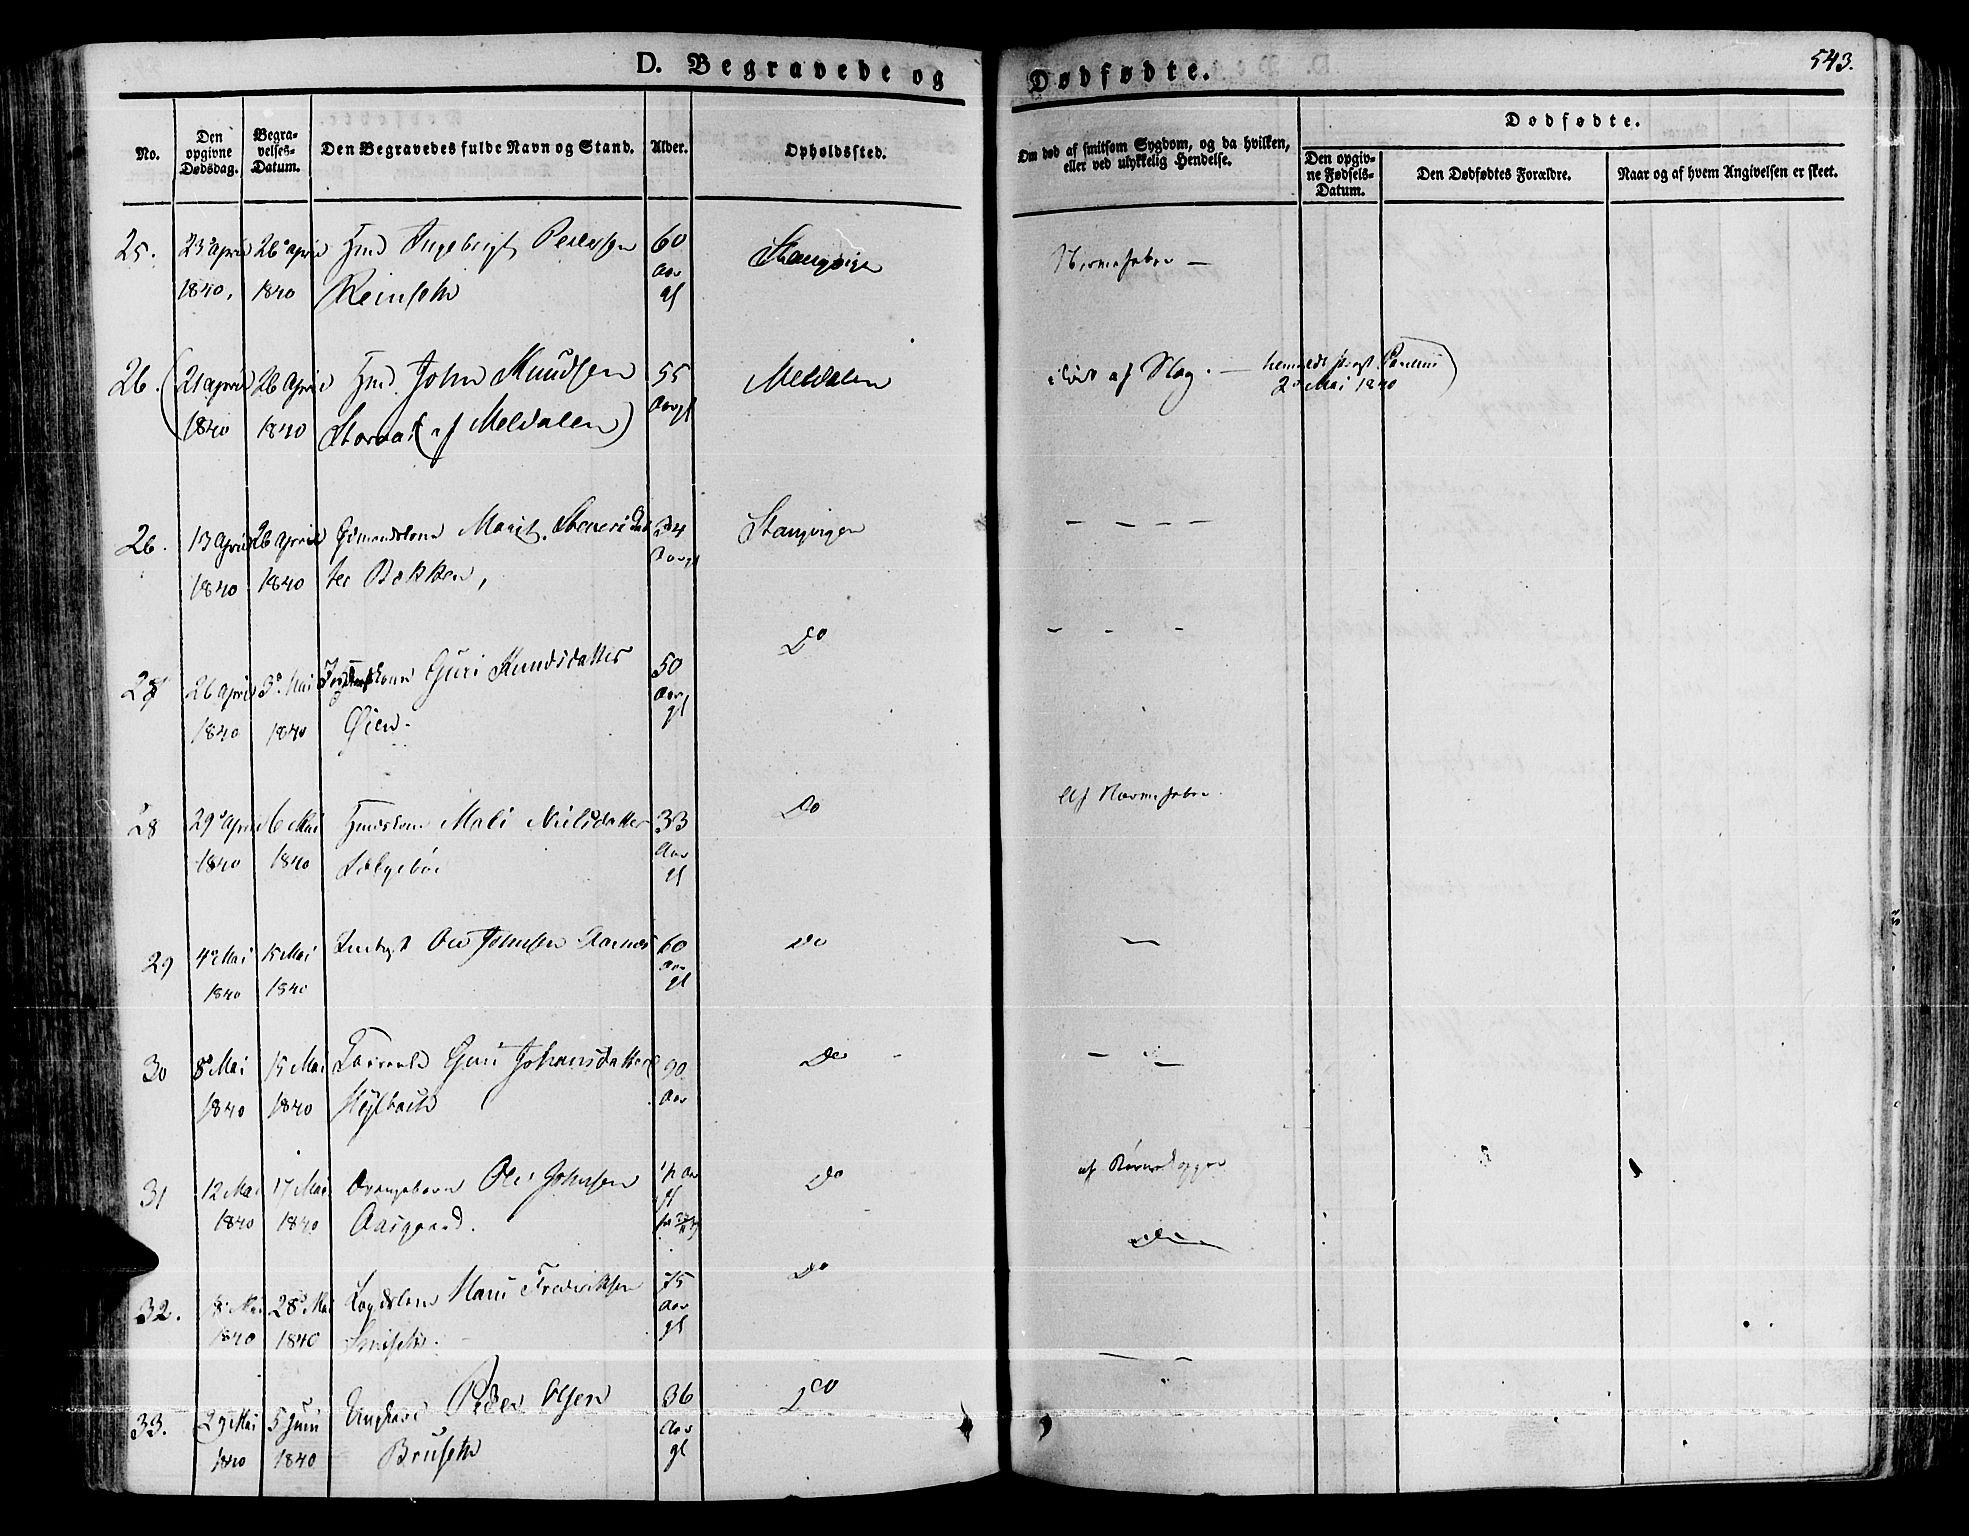 D. Begravede og Dødfødte.
543.
No.
Den opgivne Dødsdag.
Begravelses-Datum.
Den Begravedes fulde Navn og Stand.
Alder.
Opholdssted.
Om død af smitsom Sygdom, og da hvilken, eller ved ulykkelig Hendelse.
Dødfødte.
Den opgivne Fødsels-Datum.
Den Dødfødtes Forældre.
Naar og af hvem Angivelsen er skeet.
25. 23 april 26 april Gmd Ingebrigt Pedersen 60 Stangvigen
1840, 1840 Reinseth Aar gl
26. (21 april 26 April Gmd. John Knudsen 55 Meldalen af Slag. —
1840 1840 Storaas (af Meldalen) Aar gl 2 Mai 1840
26. 13 april 26 april Marit Sivertsdat 24 Stangvigen — — —
1840 1840 ter Bækken, Aar gl
27 26 april 3 Mai Guri Knudsdatter 50 Do — — —
1840 1840 Øien. Aar gl
28 29 april 6 Mai Mali Nielsdatter 33 Do Af Nervefeber.
1840 1840 Aar gl
29 4 Mai 15 Mai Ole Johnsen Aarnes 60 Do —
1840 1840 Aar gl
30 8 Mai 15 Mai Guri Johansdatter 90 Do — —
1840 1840 Aar
31 12 Mai 17 Mai Drengebarn Ole Johnsen Do af
1840 1840 Aasgaard.
32. 8 Mai 28 Mai Hans Fredriksen 75 Do
1840 1840 Aar gl
33. 29 Mai 5 Juni Ungkarl Peder Olsen 36 Do — —
1840 1840 Bruseth Aar gl